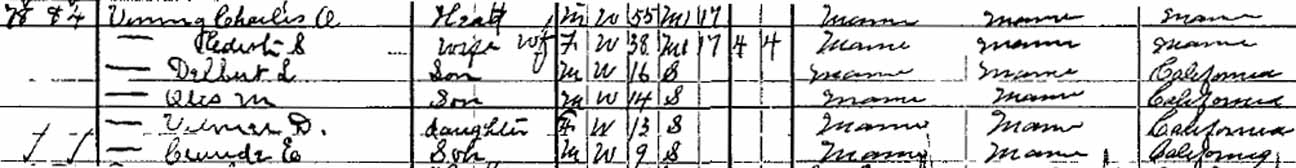 78 84 Vining Charles A Head M W 55 M1 17 Maine Maine Maine
— S Wife Wf F W 38 M1 17 4 4 Maine Maine Maine
— Delbert L Son M W 16 S Maine Maine California
— M Son M W 14 S Maine Maine California
— D. daughter F W 13 S Maine Maine California
— E Son M W 9 S Maine Maine California